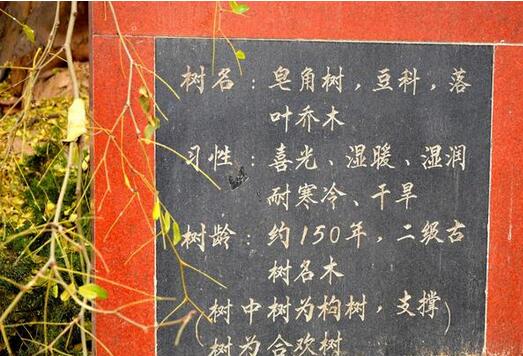 树名：皂角树，豆科，落
叶乔木
习性：喜光、湿暖、湿润
耐寒冷、干旱
树龄：约150年，二级古
树名木
（树中树为构树，支撑）
树为合欢树